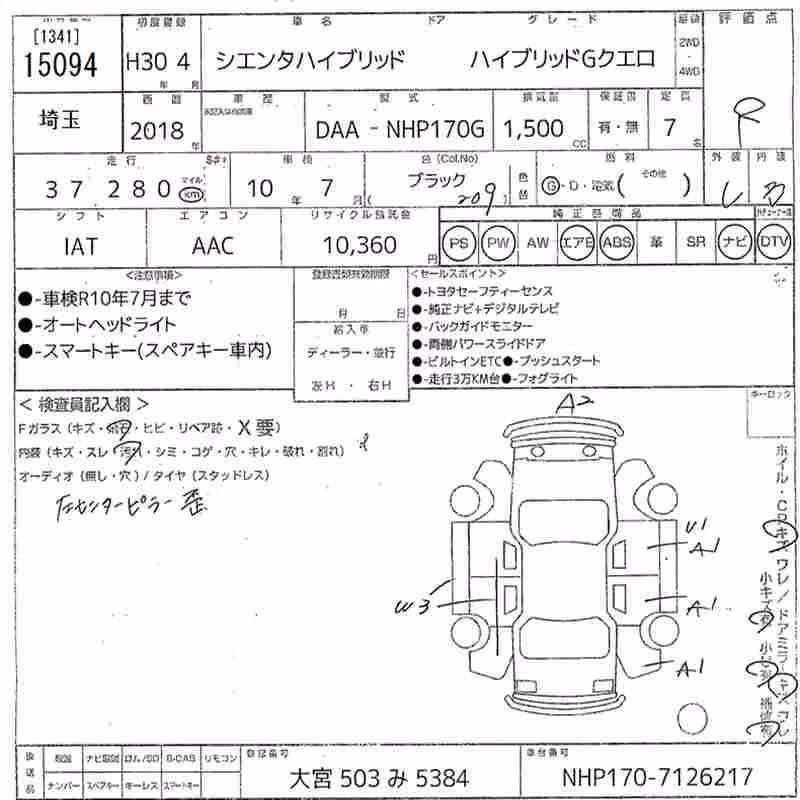 [1341]
15094
初度登録
H30 4
年 月
車名 ドア グレード
シエンタハイブリッド ハイブリッドGクエロ
2WD
4WD
評価点
R
埼玉
西暦
2018
年
車歴
型式
DAA - NHP170G
排気量
1,500
CC
保証書
有・無
定員
7
名
走行
37 280
マイル
km
S#*
車検
10 年 7 月
色 (Col,No)
ブラック
209
燃料
G・D・電気( その他 )
外装 内装
シフト
IAT
エアコン
AAC
リサイクル預託金
10,360
円
純正装備品
PS PW AW エアB ABS 革 SR ナビ DTV
<注意事項>
●-車検R10年7月まで
●-オートヘッドライト
●-スマートキー(スペアキー車内)
登録書類有効期限
月 日
輸入車
ディーラー・並行
左H ・ 右H
<セールスポイント>
●-トヨタセーフティーセンス
●-純正ナビ+デジタルテレビ
●-バックガイドモニター
●-両側パワースライドドア
●-ビルトインETC●-プッシュスタート
●-走行3万KM台●-フォグライト
< 検査員記入欄 >
Fガラス (キズ・飛石・ヒビ・リペア跡・X要)
内装 (キズ・スレ・汚れ・シミ・コゲ・穴・キレ・破れ・割れ)
オーディオ (無し・穴) / タイヤ (スタッドレス)
左センターピラー歪
キーロック
A2
U1
A1
W3
A1
A1
後送品
取説 ナビ取説 ロム/SD B-CAS リモコン
ナンバー スペアキー キーレス スマートキー
登録番号
大宮 503 み 5384
車台番号
NHP170-7126217